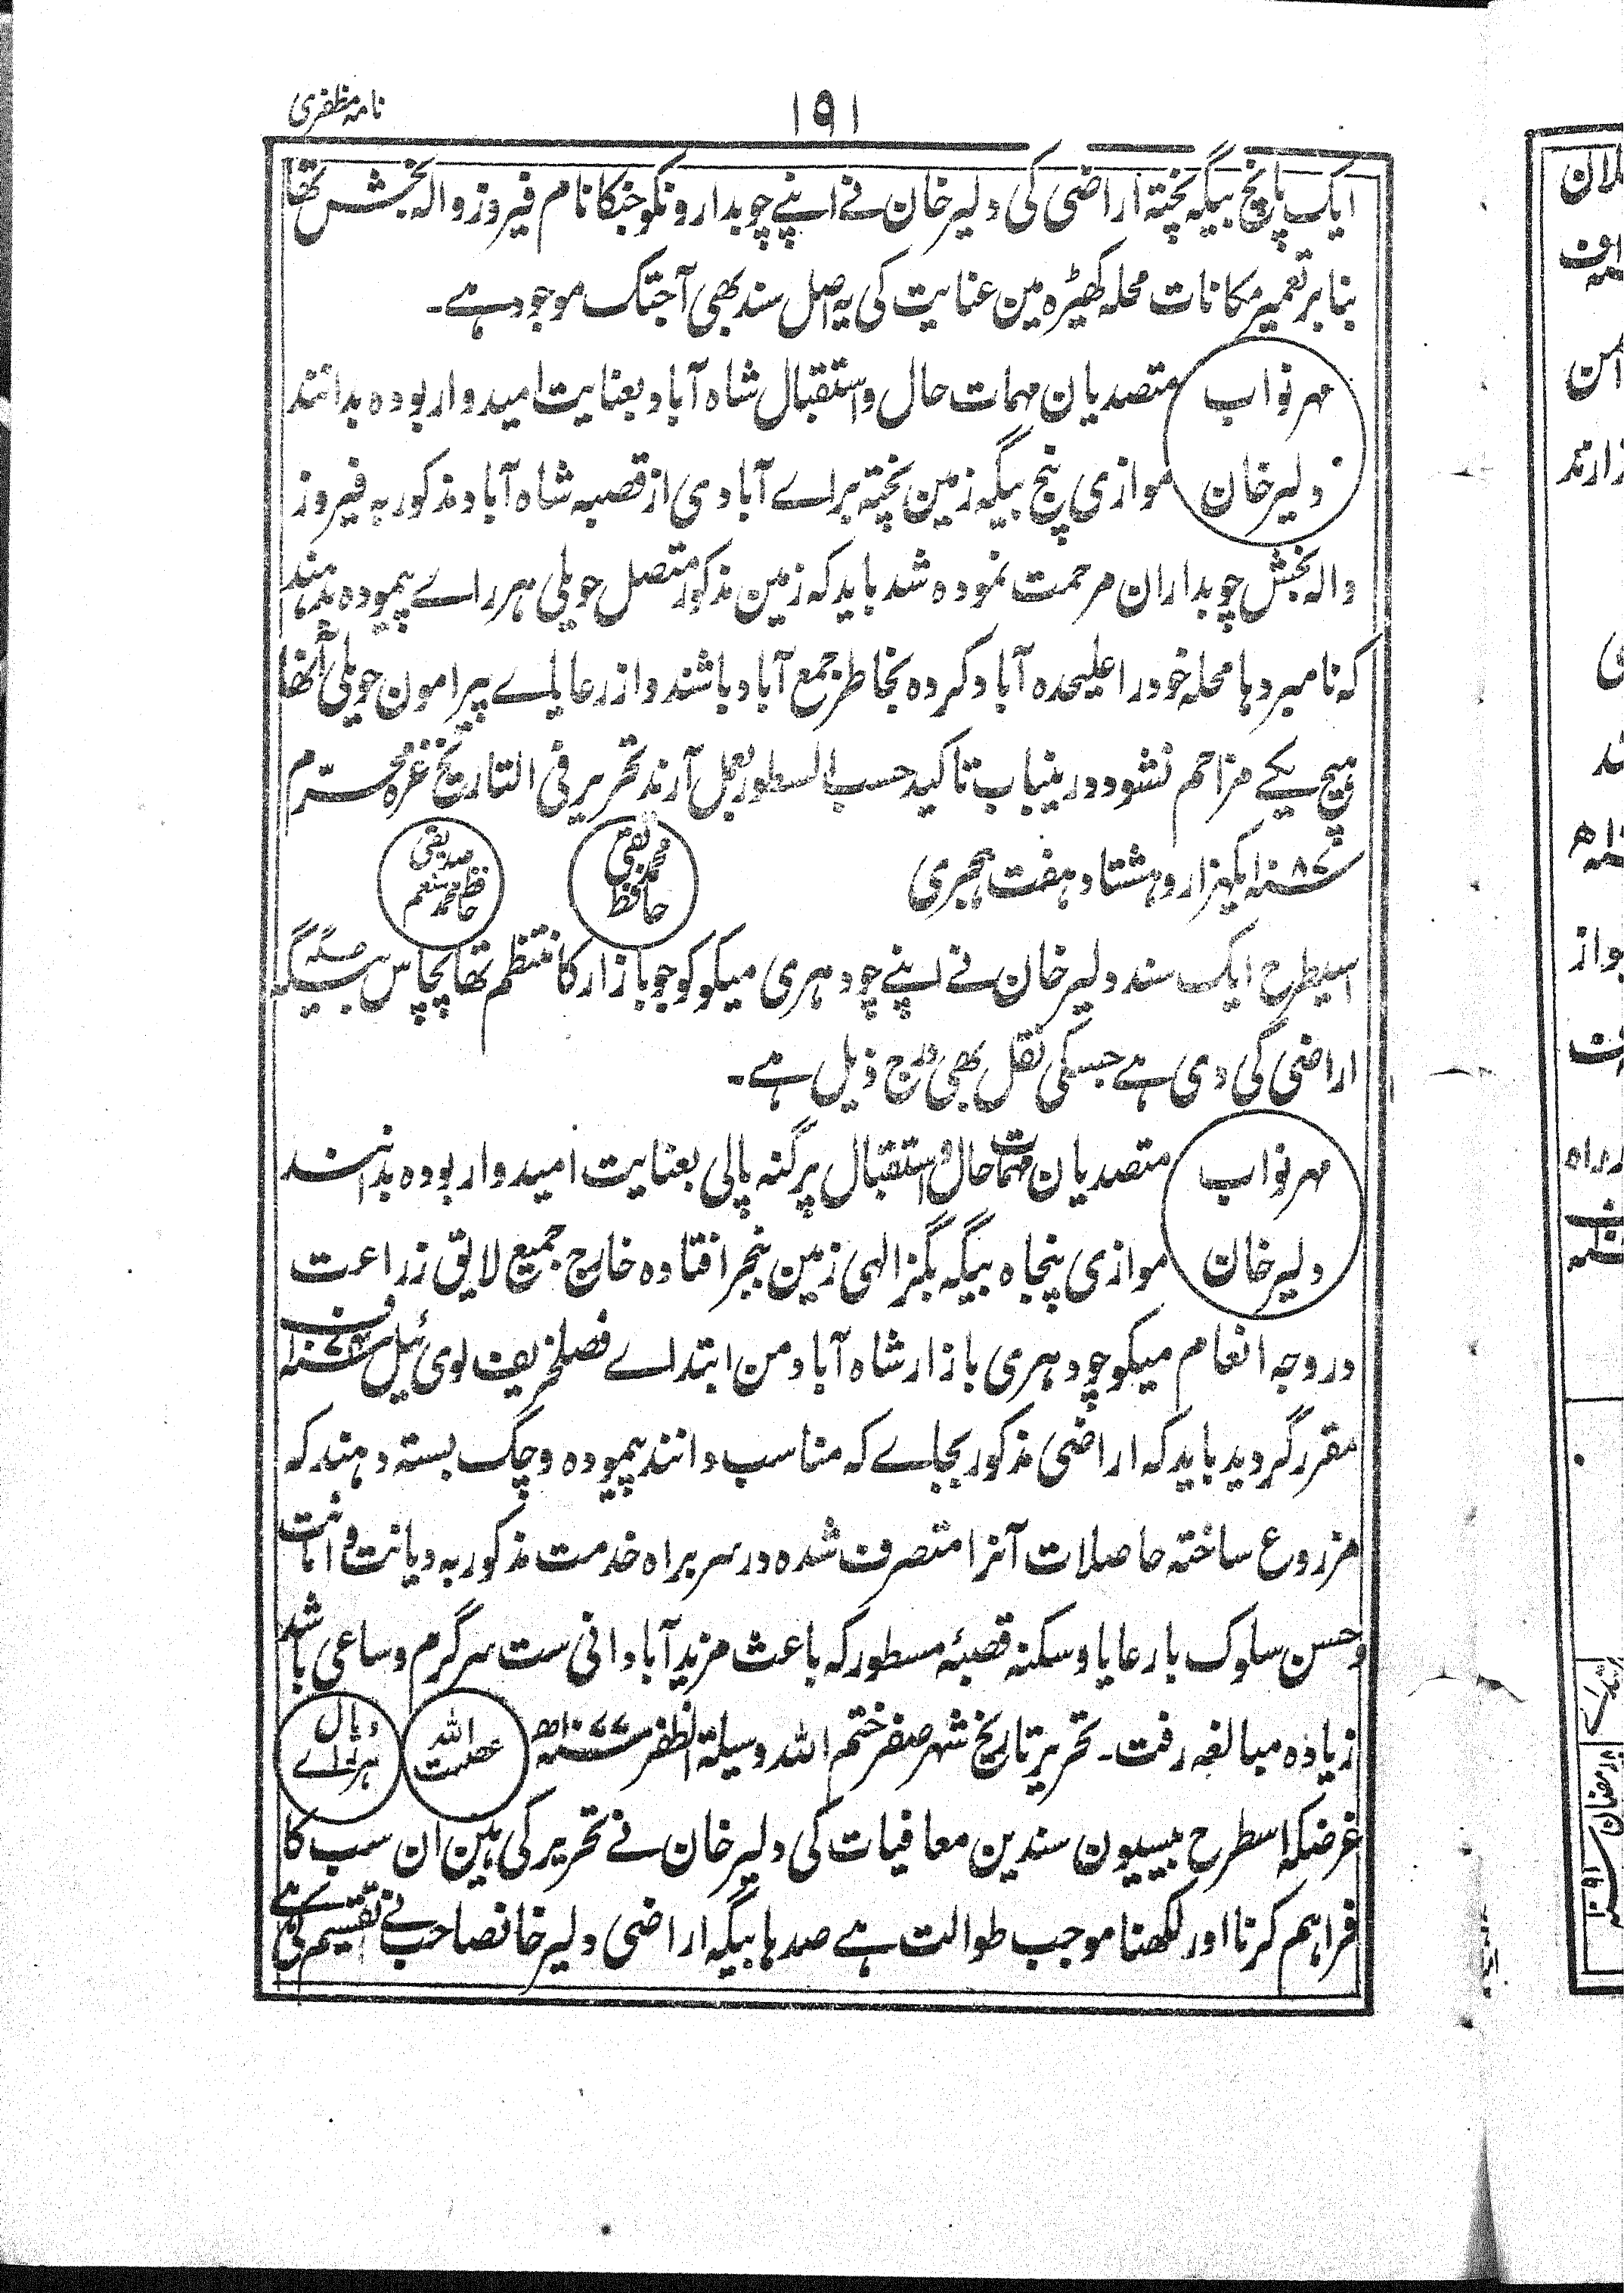 نامہ مظفری
۱۹۱
ایک پانچ بیگہ پختہ اراضی کی دلیر خان نے اپنے چوبدارونکو جنکا نام فیروز والہ بخش تھا
بنا بر تعمیر مکانات محلہ کھیڑہ مین عنایت کی یہ اصل سند بھی آجتک موجود ہے۔
مہر نواب دلیر خان
متصدیان مہمات حال و استقبال شاہ آباد بعنایت امیدوار بودہ بدانند
موازی پنج بیگہ زمین پختہ براے آبادی از قصبہ شاہ آباد مذکور بہ فیروز
والہ بخش چوبداران مرحمت نمودہ شد باید کہ زمین مذکور متصل حویلی ہرراے پیمودہ بدہند
کہ نامبردہا محلہ خود را علیحدہ آباد کردہ بخاطر جمع آباد باشند و از رعایاے پیرامون حویلی آنہا
ہیچ یکے مزاحم نشود درینباب تاکید حسب المسطور بعمل آرند تحریر فی التاریخ غرہ محرم
۱۰۸۷ سنہ ایکہزار و ہشتاد و ہفت ہجری
محمد نقی حافظ
صدیقی حافظ محمد منعم
اسیطرح ایک سند دلیر خان نے اپنے چودہری میکو کو جو بازار کا منتظم تھا پچاس بیگہ
اراضی کی دی ہے جسکی نقل بھی درج ذیل ہے۔
مہر نواب دلیر خان
متصدیان مہمات حال و استقبال پرگنہ پالی بعنایت امیدوار بودہ بدانند
موازی پنجاہ بیگہ بگز الہی زمین بنجر افتادہ خارج جمیع لایق زراعت
در وجہ انعام میکو چودہری بازار شاہ آباد من ابتداے فصلخریف لوی ئیل
مقرر گردید باید کہ اراضی مذکور بجاے کہ مناسب دانند پیمودہ و چک بستہ دہند کہ
مزروع ساختہ حاصلات آنرا متصرف شدہ در سربراہ خدمت مذکور بہ دیانت و امانت
و حسن سلوک با رعایا و سکنہ قصبۂ مسطور کہ باعث مزید آبادانی ست سرگرم و ساعی باشد
زیادہ مبالغہ رفت۔ تحریر تاریخ شہر صفر ختم اللہ وسیلۃ الظفر ۱۰۷۷ سنہ ھ
عصمت اللہ
دیال ہرراے
غرضکہ اسطرح بیسیون سندین معافیات کی دلیر خان نے تحریر کی ہین ان سب کا
فراہم کرنا اور لکھنا موجب طوالت ہے صدہا بیگہ اراضی دلیر خانصاحب نے تقسیم کی ہے